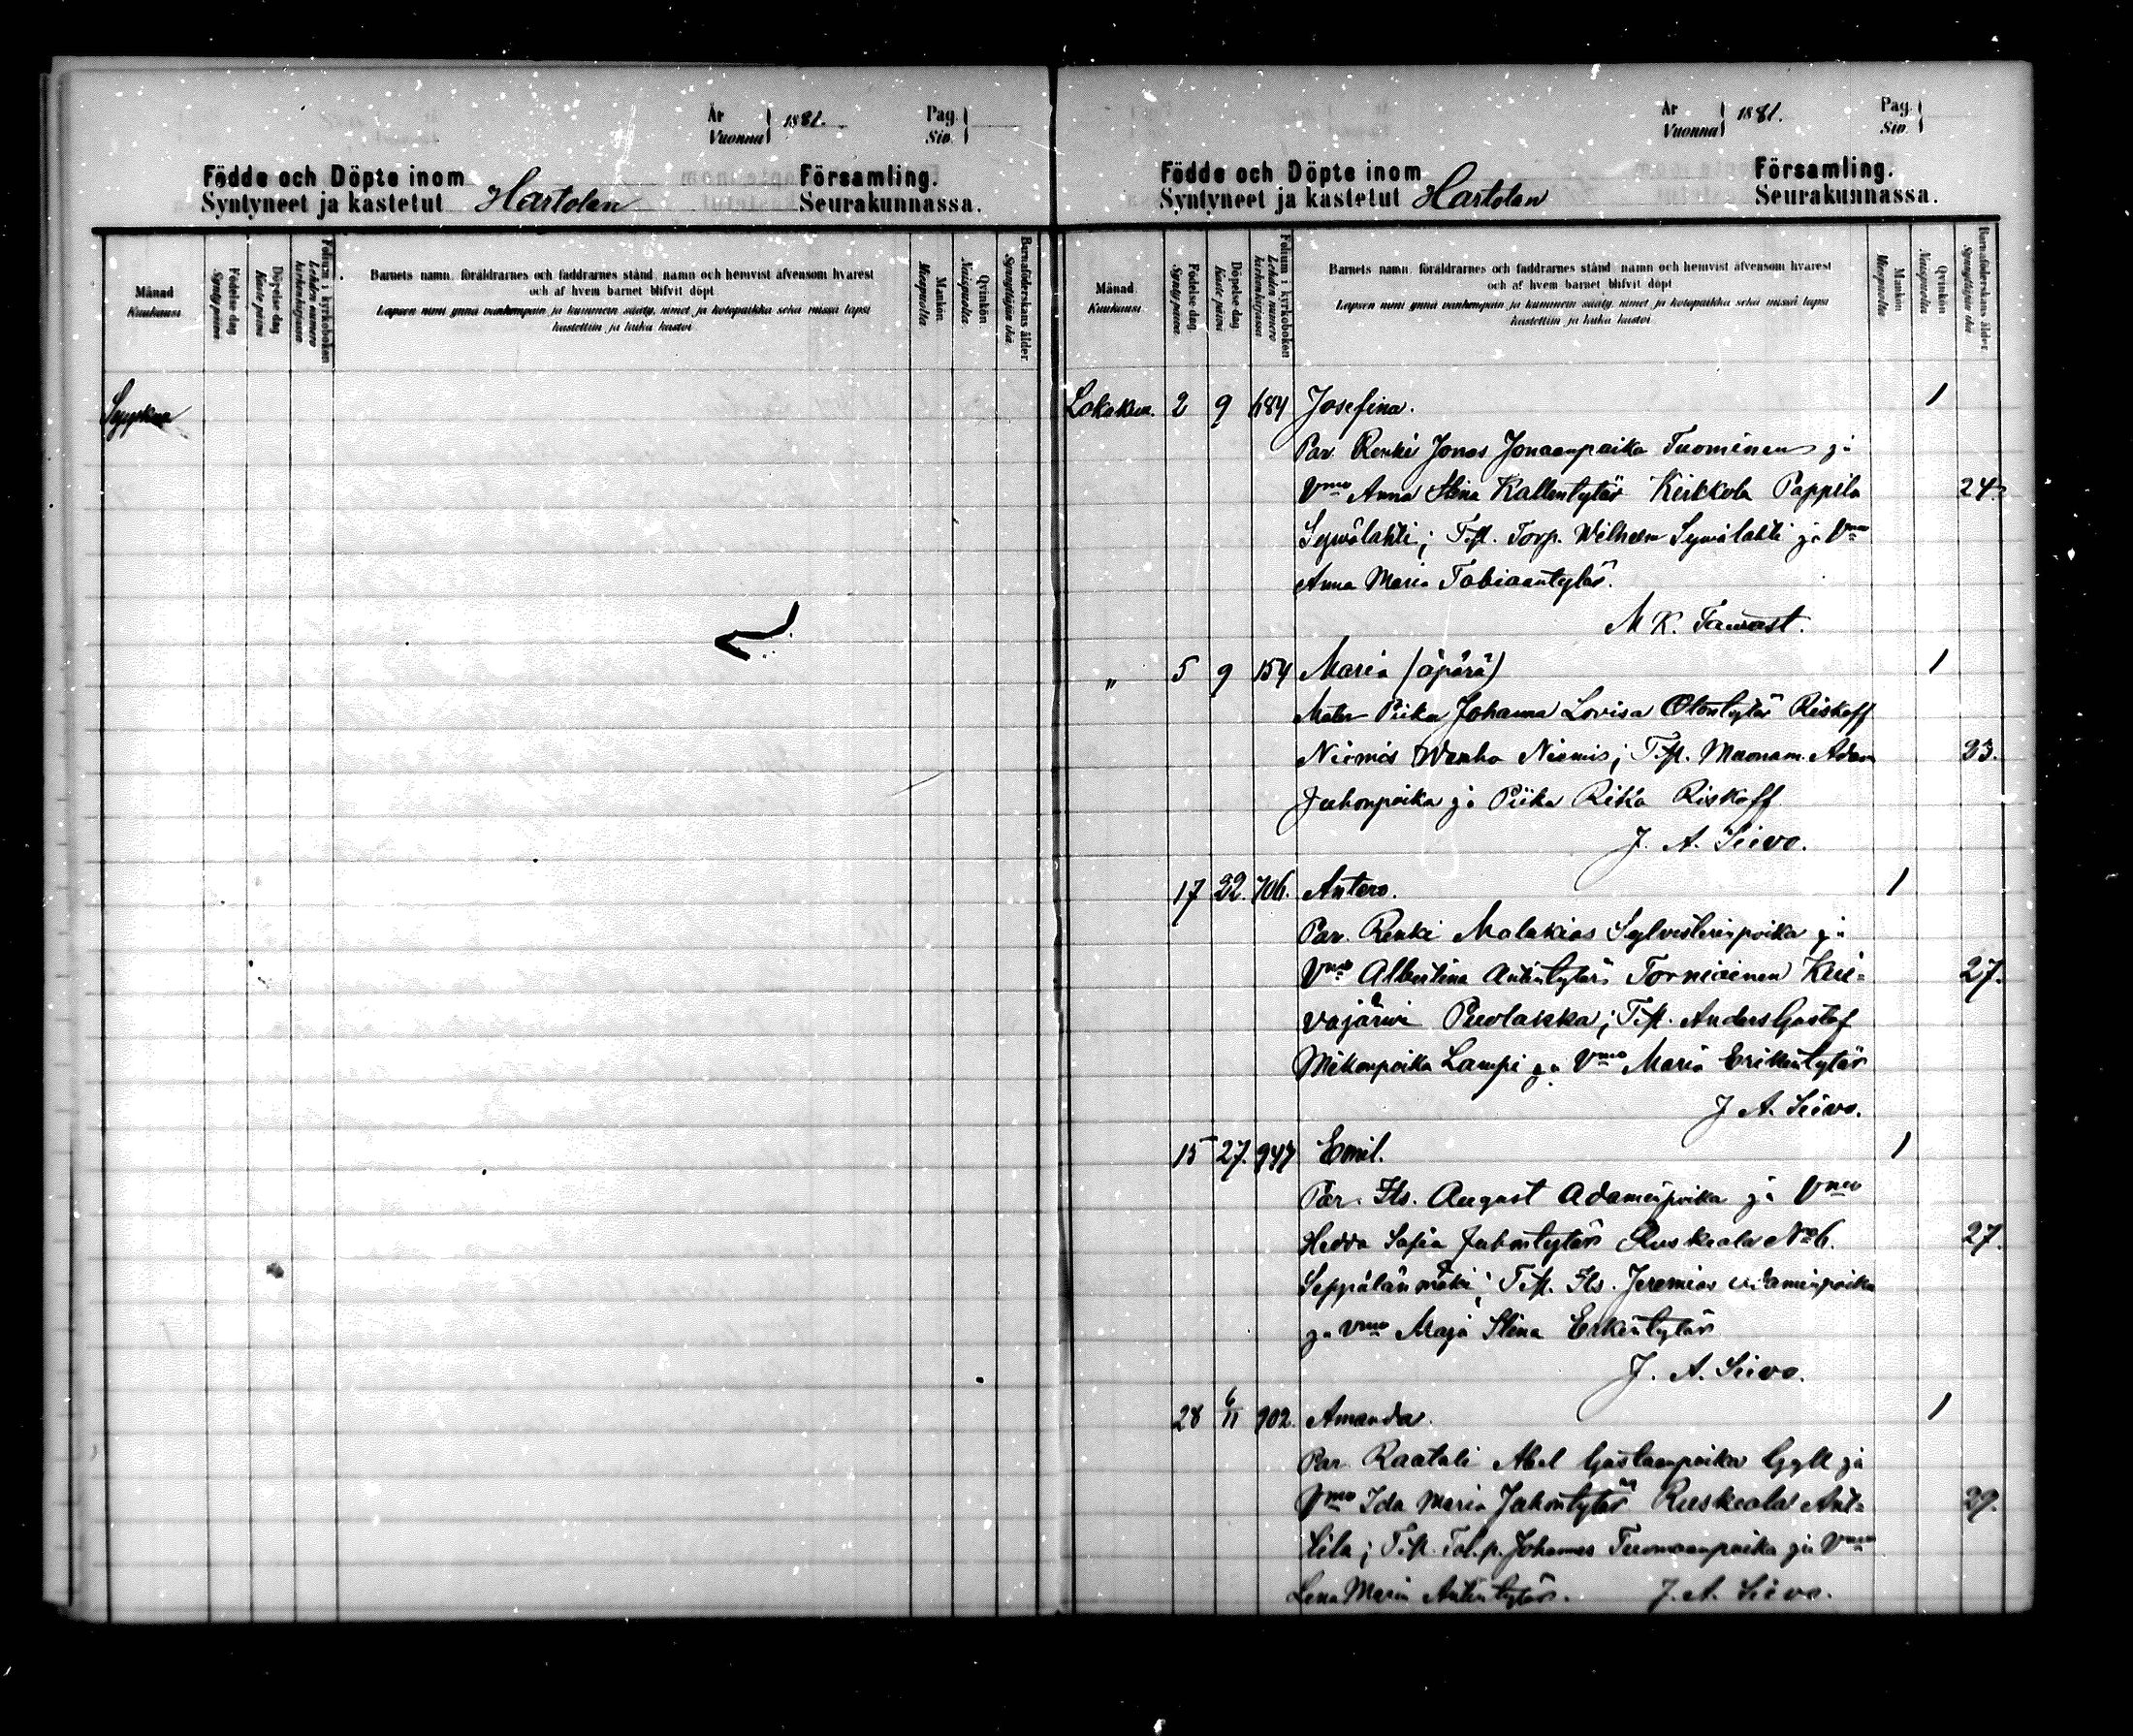 År
Vuonna 1881. Pag.
Siv.
Födde och Döpte inom Församling.
Syntyneet ja kastetut Hartolan Seurakunnassa.
Månad
Kuukausi
Födelse dag
Synty päivä
Döpelse dag
Kaste päivä
Folium i kyrkoboken
Lehden numero
kirkonkirjassa
Barnets namn, föräldrarnes och faddrarnes stånd, namn och hemvist äfvensom hvarest
och af hvem barnet blifvit döpt
Lapsen nimi ynnä vanhempain ja kummein sääty, nimet ja kotopaikka sekä missä lapsi
kastettiin ja kuka kastoi
Mankön
Miespuolia
Qvinkön
Naispuolia
Barnaföderskans ålder
Synnyttäjän ikä
Syyskuu
År
Vuonna 1881. Pag.
Siv.
Födde och Döpte inom Församling.
Syntyneet ja kastetut Hartolan Seurakunnassa.
Månad
Kuukausi
Födelse dag
Synty päivä
Döpelse dag
Kaste päivä
Folium i kyrkoboken
Lehden numero
kirkonkirjassa
Barnets namn, föräldrarnes och faddrarnes stånd, namn och hemvist äfvensom hvarest
och af hvem barnet blifvit döpt
Lapsen nimi ynnä vanhempain ja kummein sääty, nimet ja kotopaikka sekä missä lapsi
kastettiin ja kuka kastoi
Mankön
Miespuolia
Qvinkön
Naispuolia
Barnaföderskans ålder.
Synnyttäjän ikä
Lokakuu. 2 9 684 Josefina. 1
Par. Renki Jonas Jonaanpoika Tuominen ja
Vmo Anna Stina Kallentytär Kirkkola Pappila 24.
Syvälahti; Test. Torp. Wilhelm Syvälahti ja Vmo
Anna Maria Tobiaantytär.
M K. Tawast.
" 5 9 154 Maria (äpärä) 1
Mater Piika Johanna Lovisa Otontytär Riskoff
Niemis Wanha Niemis; Test. Muonam. Adam 23.
Juhonpoika ja Piika Rika Riskoff
J. A. Siivo.
17 22. 706. Antero. 1
Par. Renki Malakias Sylvesterinpoika ja
Vmo Albertina Antintytär Torniainen Kui= 27.
vajärvi Puolakka; Test. Anders Gustaf
Mikonpoika Lampi ja Vmo Maria Erikintytär
J A. Siivo.
15 27. 947 Emil. 1
Par. Its. August Adaminpoika ja Vmo
Hedda Sofia Juhontytär Ruskeala No 6. 27.
Seppälänmäki; Test. Its. Jeremias Adaminpoika
ja Vmo Maja Stina Erkintytär
J. A. Siivo.
28 6/11 902. Amanda. 1
Par Raatali Abel Gustaanpoika Gyll ja
Vmo Ida Maria Juhontytär Ruskeala Ant= 29.
tila; Test. Tal. p. Johannes Tuomaanpoika ja Vmo
Lena Maria Antintytär. J. A. Siivo.